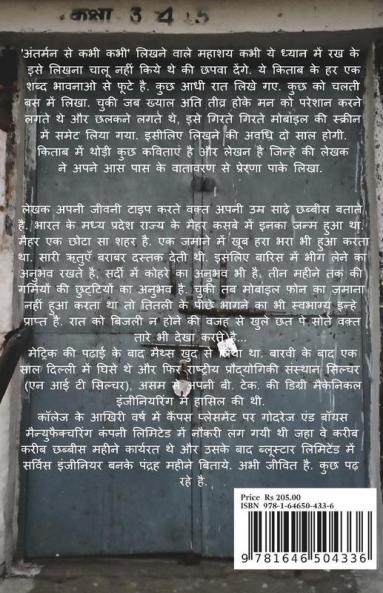 कक्षा 3 4 5
'अंतर्मन से कभी कभी' लिखने वाले महाशय कभी ये ध्यान में रख के
इसे लिखना चालू नहीं किये थे की छपवा देंगे. ये किताब के हर एक
शब्द भावनाओ से फूटे है. कुछ आधी रात लिखे गए. कुछ को चलती
बस में लिखा. चुकी जब ख्याल अति तीव्र होके मन को परेशान करने
लगते थे और छलकने लगते थे, इसे गिरते गिरते मोबाईल की स्क्रीन
में समेट लिया गया. इसीलिए लिखने की अवधि दो साल होगी.
किताब में थोड़ी कुछ कविताएं है और लेखन है जिन्हे की लेखक
ने अपने आस पास के वातावरण से प्रेरणा पाके लिखा.
लेखक अपनी जीवनी टाइप करते वक्त अपनी उम्र साढ़े छब्बीस बताते
है. भारत के मध्य प्रदेश राज्य के मैहर कसबे में इनका जन्म हुआ था.
मैहर एक छोटा सा शहर है. एक जमाने में खूब हरा भरा भी हुआ करता
था. सारी ऋतुएँ बराबर दस्तक देती थी. इसलिए बारिस में भीग लेने का
अनुभव रखते है. सर्दी में कोहरे का अनुभव भी है, तीन महीने तक की
गर्मियों की छुट्टियों का अनुभव है. चुकी तब मोबाइल फोन का जमाना
नहीं हुआ करता था तो तितली के पीछे भागने का भी स्वभाग्य इन्हे
प्राप्त है. रात को बिजली न होने की वजह से खुले छत पे सोते वक्त
तारे भी देखा करते है...
मेट्रिक की पढ़ाई के बाद मैथ्स खुद से लिया था. बारवी के बाद एक
साल दिल्ली में घिसे थे और फिर राष्ट्रीय प्रौद्योगिकी संस्थान सिल्चर
(एन आई टी सिल्चर), असम से अपनी बी. टेक. की डिग्री मैकेनिकल
इंजीनियरिंग में हासिल की थी.
कॉलेज के आखिरी वर्ष में कैंपस प्लेसमेंट पर गोदरेज एंड बॉयस
मैन्युफैक्चरिंग कंपनी लिमिटेड में नौकरी लग गयी थी जहा वे करीब
करीब छब्बीस महीने कार्यरत थे और उसके बाद ब्लूस्टार लिमिटेड में
सर्विस इंजीनियर बनके पंद्रह महीने बिताये. अभी जीवित है. कुछ पढ़
रहे है.
Price Rs 205.00
ISBN 978-1-64650-433-6
9 781646 504336